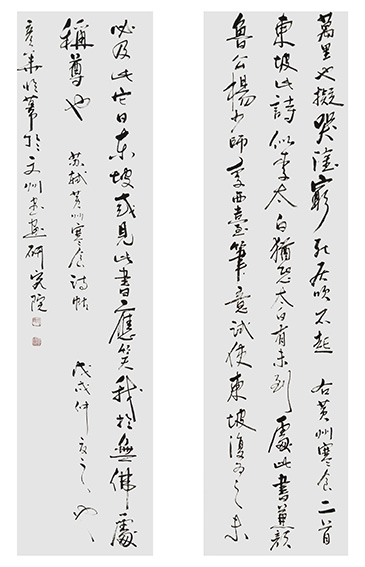 萬里也擬哭塗窮死灰吹不起 右黃州寒食二首
東坡此詩似李太白猶恐太白有未到處此書兼顏
魯公楊少師李西臺筆意試使東坡復為之未
必及此它日東坡或見此書應笑我於無佛處
稱尊也 蘇軾黃州寒食詩帖 戊戌仲夏之
於文州書畫研究院